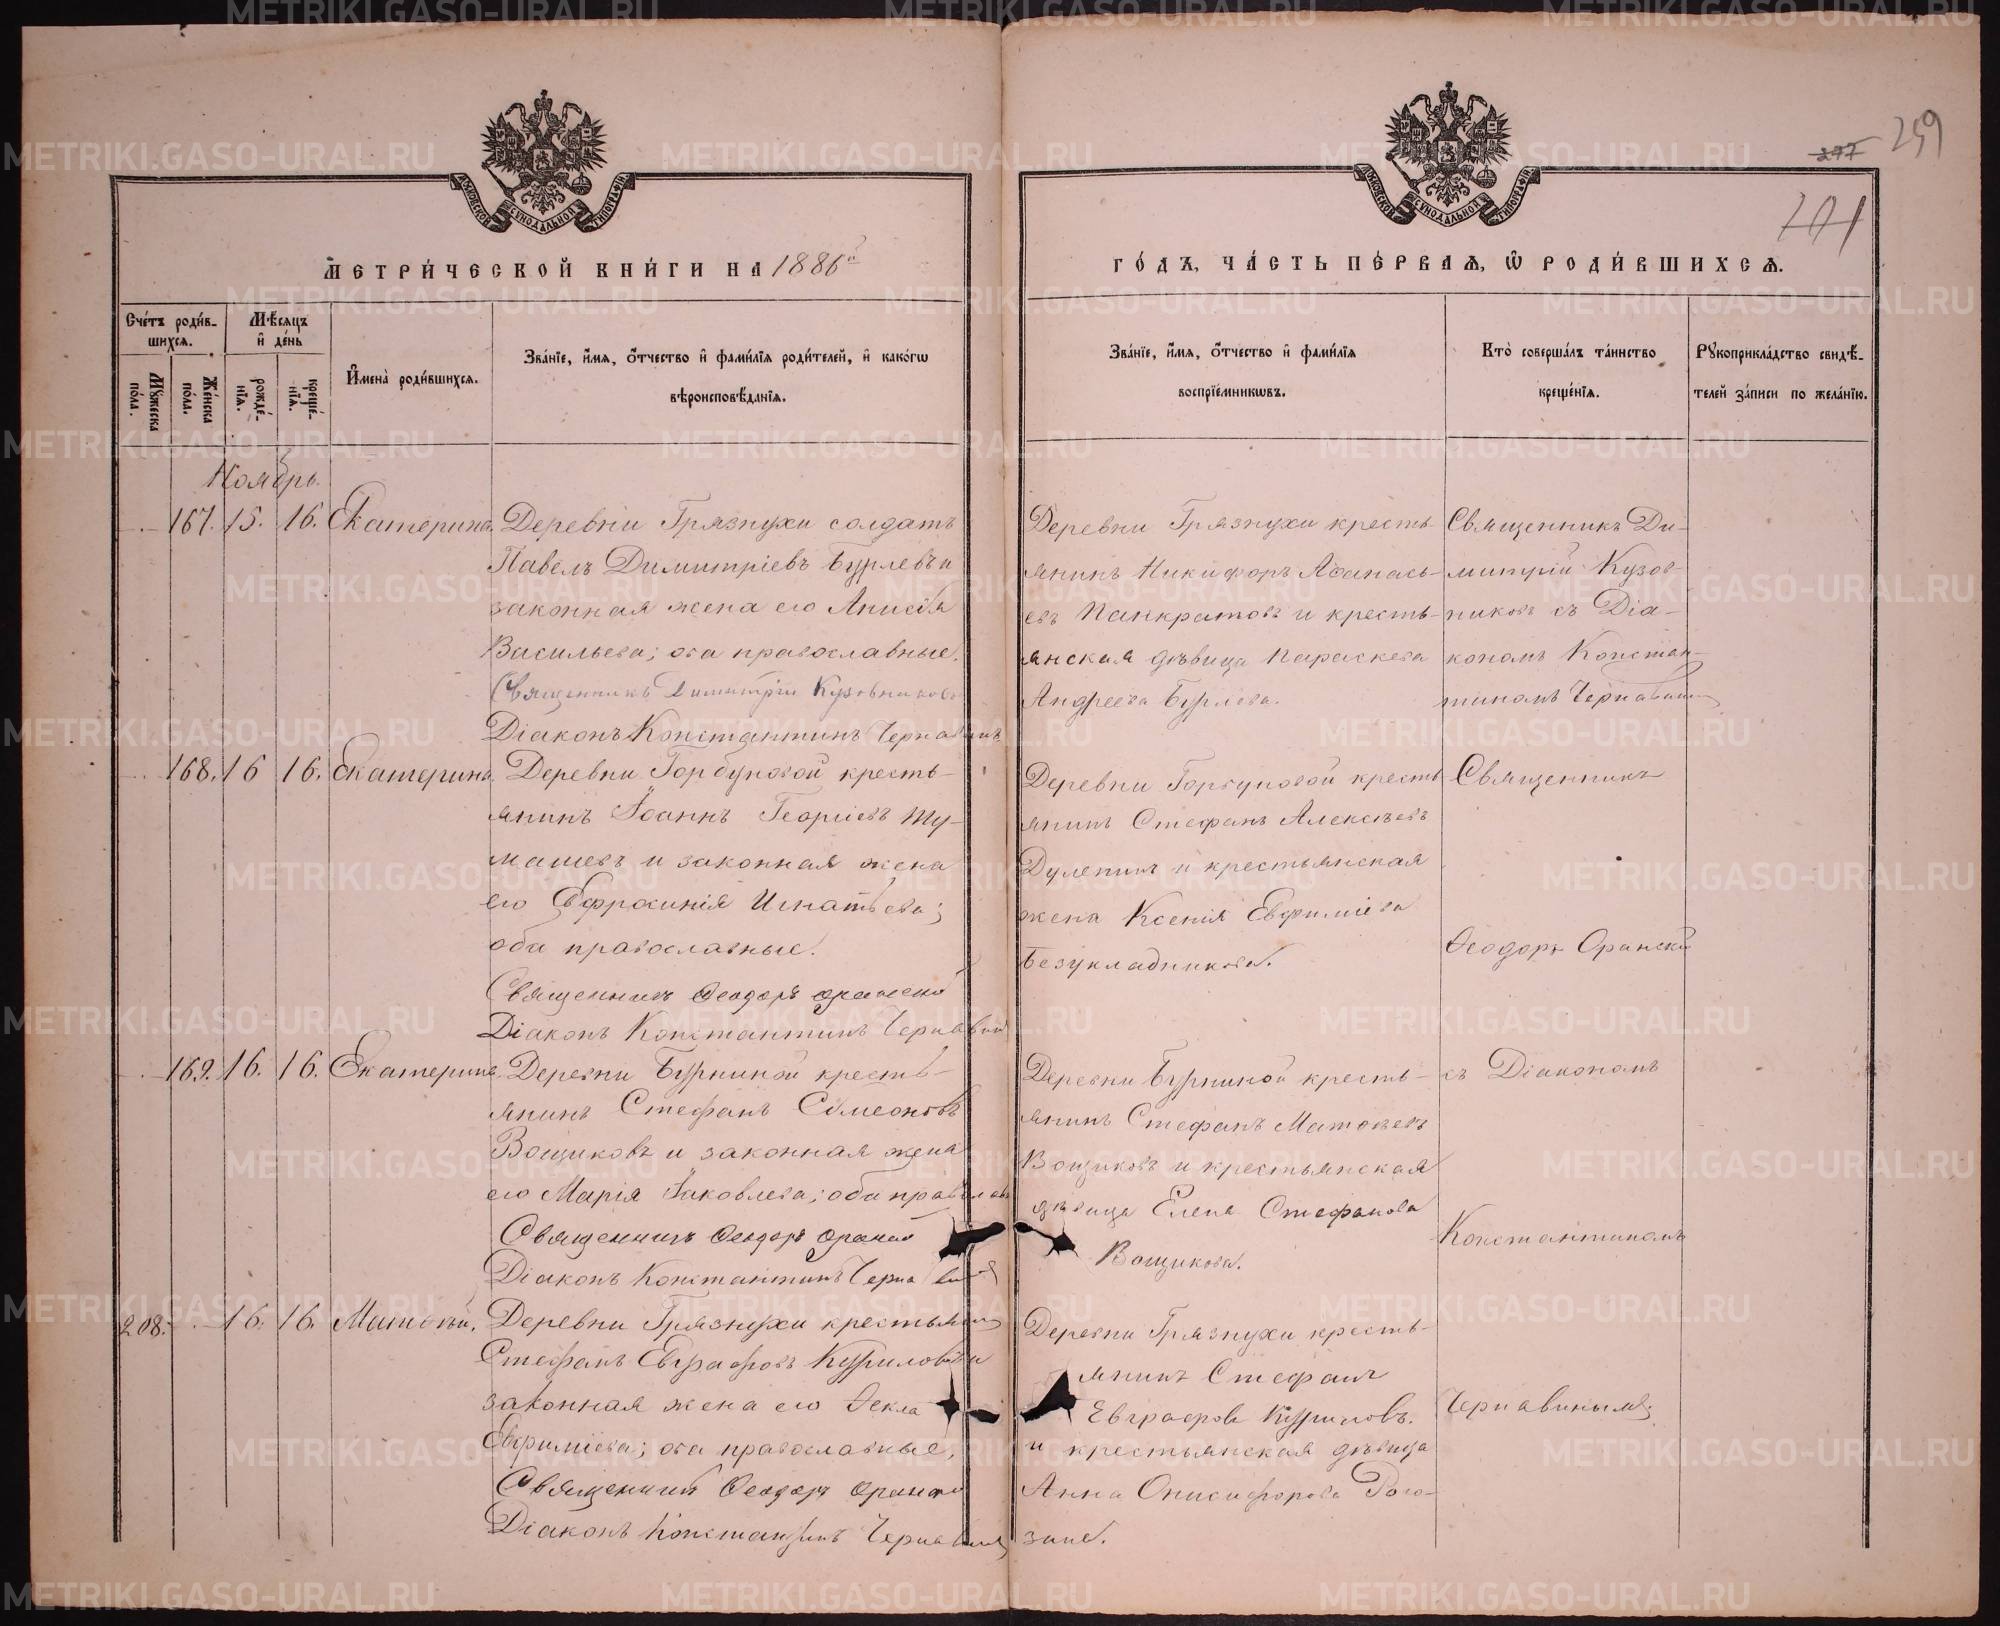 МЕТРИ́ЧЕСКОЙ КНИ́ГИ НА 1886й
ГО́ДЪ, ЧА́СТЬ ПЕ́РВАѦ, Ѡ РОДИ́ВШИХСѦ.
259
Сче́тъ роди́в-
шихся.
Мѣ́сяцъ
и̂ де́нь
Мꙋжеска по́ла.
Же́нска по́ла.
рожде́-
нїя.
креще́-
нїя.
И҆мена̀ роди́вшихся.
Зва́нїе, и҆́мя, ѻ҆́тчество и҆ фами́лїя роди́телей, и҆ како́гѡ
вѣроисповѣ́данїя.
Зва́нїе, и҆́мя, ѻ҆́тчество и҆ фами́лїя
воспрїе́мникѡвъ.
Кто̀ соверша́лъ та́инство
креще́нїя.
Рꙋкоприкла́дство свидѣ́-
телей за́писи по жела́нїю.
Ноябрь.
167. 15. 16. Екатерина.
Деревни Грязнухи солдатъ
Павелъ Димитріевъ Бурлевъ и
законная жена его Анисія
Васильева; оба православные.
Священникъ Димитрій Кузовниковъ
Діаконъ Константинъ Чернавинъ
Деревни Грязнухи кресть-
янинъ Никифоръ Аѳанась-
евъ Панкратовъ и кресть-
янская дѣвица Параскева
Андреева Бурлева.
Священникъ Ди-
митрій Кузов-
никовъ съ Діа-
кономъ Констан-
тиномъ Чернавинымъ
168. 16 16. Екатерина.
Деревни Горбуновой кресть-
янинъ Іоаннъ Георгіевъ Ту-
машевъ и законная жена
его Евфросинія Игнатьева;
оба православные.
Священникъ Ѳеодоръ Оранскій
Діаконъ Константинъ Чернавинъ
Деревни Горбуновой кресть
янинъ Стефанъ Алексѣевъ
Дулепинъ и крестьянская
жена Ксенія Евфиміева
Безукладникова.
Священникъ
Ѳеодоръ Оранскій
169. 16. 16. Екатерина.
Деревни Бурниной кресть-
янинъ Стефанъ Сѵмеоновъ
Вощиковъ и законная жена
его Марія Іаковлева; оба православ
Священникъ Ѳеодоръ Оранскій
Діаконъ Константинъ Чернавинъ
Деревни Бурниной кресть-
янинъ Стефанъ Матѳеевъ
Вощиковъ и крестьянская
дѣвица Елена Стефанова
Вощикова.
съ Діакономъ
Константиномъ
208. 16. 16. Матѳей.
Деревни Грязнухи крестьянинъ
Стефанъ Евграфовъ Куриловъ и
законная жена его Ѳекла
Евфиміева; оба православные,
Священникъ Ѳеодоръ Оранскій
Діаконъ Константинъ Чернавинъ
Деревни Грязнухи кресть-
янинъ Стефанъ
Евграфовъ Куриловъ.
и крестьянская дѣвица
Анна Онисифорова Рого-
зина.
Чернавинымъ.